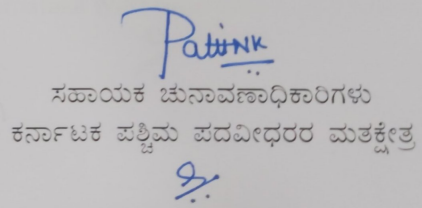 ಸಹಾಯಕ ಚುನಾವಣಾಧಿಕಾರಿಗಳು
ಕರ್ನಾಟಕ ಪಶ್ಚಿಮ ಪದವೀಧರರ ಮತಕ್ಷೇತ್ರ